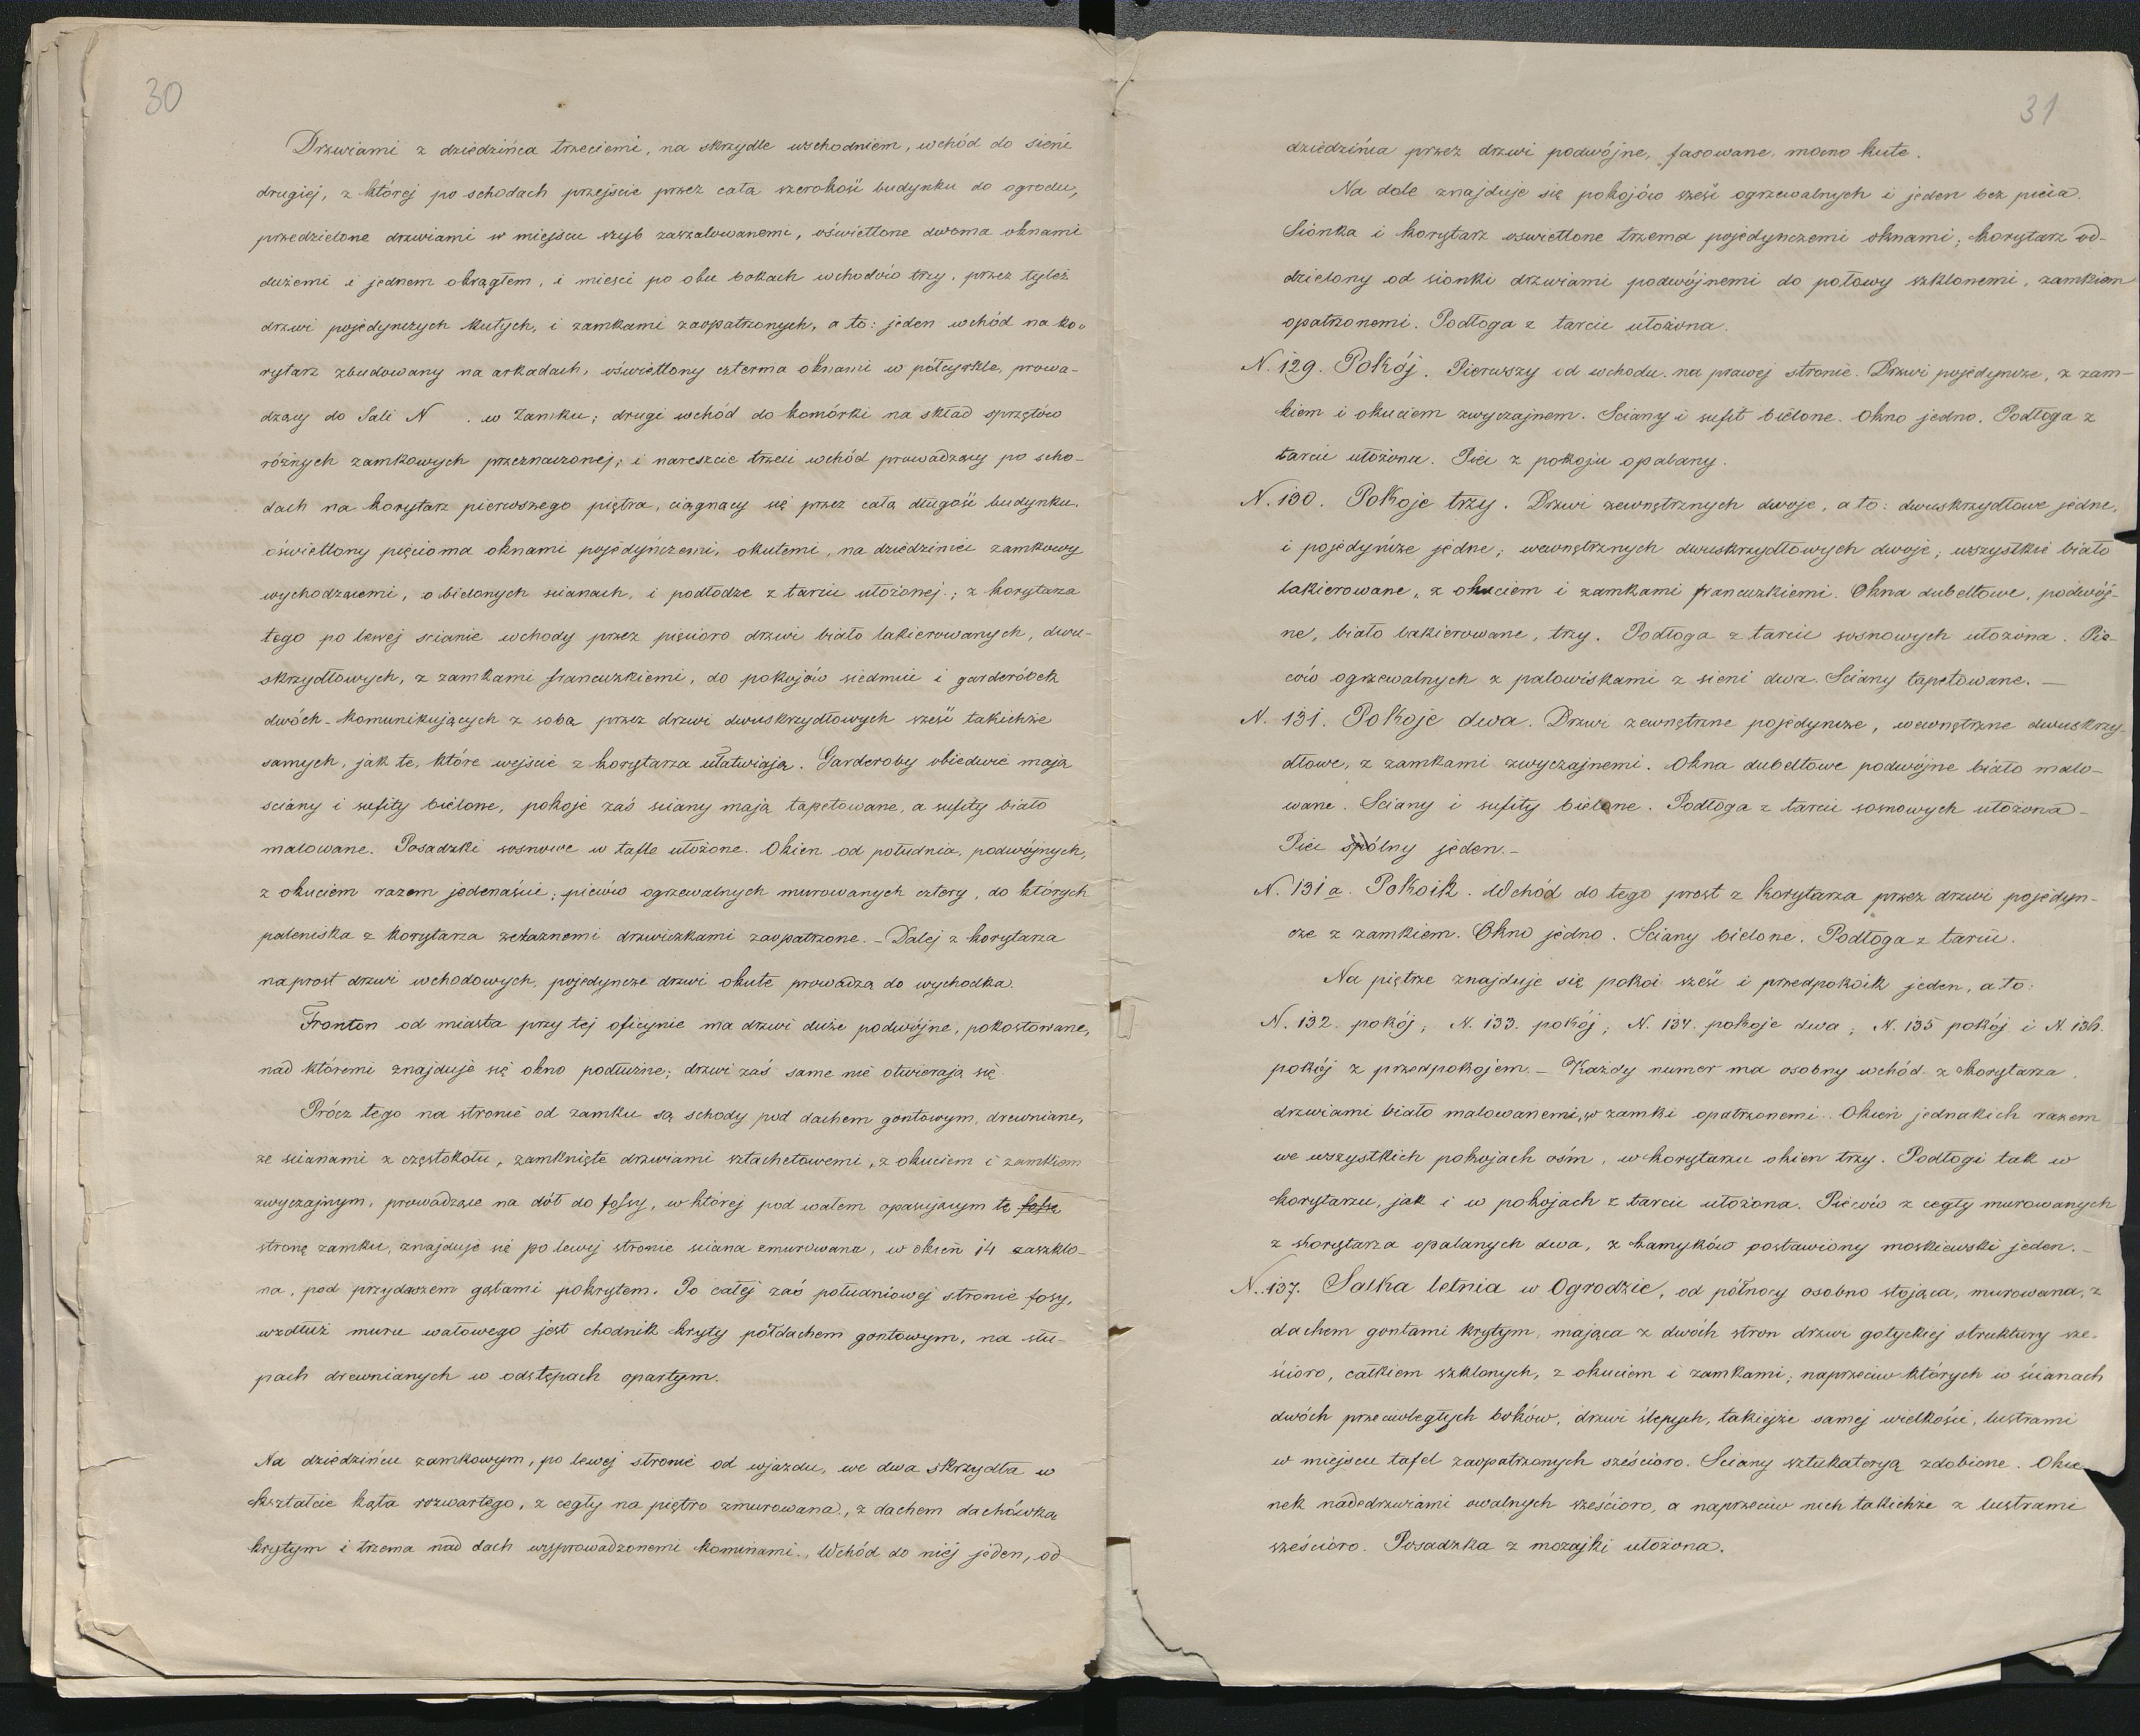 30
Drzwiami z dziedzińca trzeciemi, na skrzydle wschodniem, wchód do sieni
drugiej, z której po schodach przejście przez całą szerokość budynku do ogrodu,
przedzielone drzwiami w miejscu szyb zaszalowanemi, oświetlone dwoma oknami
dużemi i jednem okrągłem, i mieści po obu bokach wchodów trzy, przez tyleż
drzwi pojedynczych kutych, i zamkami zaopatrzonych, a to: jeden wchód na ko-
rytarz zbudowany na arkadach, oświetlony czterma oknami w półcyrkle, prowa-
dzący do Sali N . w Zamku; drugi wchód do komórki na skład sprzętów
różnych zamkowych przeznaczonej; i nareszcie trzeci wchód prowadzący po scho-
dach na korytarz pierwszego piętra, ciągnący się przez całą długość budynku,
oświetlony pięcioma oknami pojedyńczemi, okutemi, na dziedziniec zamkowy
wychodzącemi, o bielonych ścianach, i podłodze z tarcic ułożonej; z korytarza
tego po lewej ścianie wchody przez pięcioro drzwi biało lakierowanych, dwu-
skrzydłowych, z zamkami francuzkiemi, do pokojów siedmiu i garderóbek
dwóch - komunikujących z sobą przez drzwi dwuskrzydłowych sześć takichże
samych, jak te, które wejście z korytarza ułatwiają. Garderoby obiedwie mają
ściany i sufity bielone, pokoje zaś ściany mają tapetowane, a sufity biało
malowane. Posadzki sosnowe w tafle ułożone. Okien od południa, podwójnych,
z okuciem razem jedenaście; pieców ogrzewalnych murowanych cztery, do których
paleniska z korytarza żelaznemi drzwiczkami zaopatrzone. - Dalej z korytarza
naprost drzwi wchodowych, pojedyncze drzwi okute prowadzą do wychodka.
Fronton od miasta przy tej oficynie ma drzwi duże podwójne, pokostowane,
nad któremi znajduje się okno podłużne; drzwi zaś same nie otwierają się.
Prócz tego na stronie od zamku są schody pod dachem gontowym, drewniane,
ze ścianami z częstokołu, zamknięte drzwiami sztachetowemi, z okuciem i zamkiem
zwyczajnym, prowadzące na dół do fosy, w której pod wałem opasującym tę fosę
stronę zamku, znajduje się po lewej stronie ściana zmurowana, w okien 14 zaszklo-
na, pod przydaszem gątami pokrytem. Po całej zaś południowej stronie fosy,
wzdłuż muru wałowego jest chodnik kryty półdachem gontowym, na słu-
pach drewnianych w odstępach opartym.
Na dziedzińcu zamkowym, po lewej stronie od wjazdu, we dwa skrzydła w
kształcie kąta rozwartego, z cegły na piętro zmurowana, z dachem dachówką
krytym i trzema nad dach wyprowadzonemi kominami. Wchód do niej jeden, od
31
dziedzińca przez drzwi podwójne, fasowane, mocno kute.
Na dole znajduje się pokojów sześć ogrzewalnych i jeden bez pieca.
Sionka i korytarz oświetlone trzema pojedynczemi oknami; korytarz od-
dzielony od sionki drzwiami podwójnemi do połowy szklonemi, zamkiem
opatrzonemi. Podłoga z tarcic ułożona.
N. 129. Pokój. Pierwszy od wchodu na prawej stronie. Drzwi pojedyncze, z zam-
kiem i okuciem zwyczajnem. Ściany i sufit bielone. Okno jedno. Podłoga z
tarcic ułożona. Piec z pokoju opalany.
N. 130. Pokoje trzy. Drzwi zewnętrznych dwoje, a to: dwuskrzydłowe jedne,
i pojedyńcze jedne; wewnętrznych dwuskrzydłowych dwoje; wszystkie biało
lakierowane, z okuciem i zamkami francuzkiemi. Okna dubeltowe, podwój-
ne, biało lakierowane, trzy. Podłoga z tarcic sosnowych ułożona. Pie-
ców ogrzewalnych z palowiskami z sieni dwa. Ściany tapetowane. —
N. 131. Pokoje dwa. Drzwi zewnętrzne pojedyncze, wewnętrzne dwuskrzy-
dłowe, z zamkami zwyczajnemi. Okna dubeltowe podwójne biało malo-
wane. Ściany i sufity bielone. Podłoga z tarcic sosnowych ułożona -
Piec spólny jeden. -
N. 131 a. Pokoik. Wchód do tego prost z korytarza przez drzwi pojedyn-
cze z zamkiem. Okno jedno. Ściany bielone. Podłoga z tarcic.
Na piętrze znajduje się pokoi sześć i przedpokoik jeden, a to:
N. 132. pokój; N. 133. pokój; N. 134. pokoje dwa; N. 135 pokój i N. 136.
pokój z przedpokojem. - Każdy numer ma osobny wchód z korytarza
drzwiami biało malowanemi, w zamki opatrzonemi. Okien jednakich razem
we wszystkich pokojach ośm, w korytarzu okien trzy. Podłogi tak w
korytarzu, jak i w pokojach z tarcic ułożona. Pieców z cegły murowanych
z korytarza opalanych dwa, z kamyków postawiony moskiewski jeden. -
N. 137. Salka letnia w Ogrodzie, od północy osobno stojąca, murowana, z
dachem gontami krytym, mająca z dwóch stron drzwi gotyckiej struktury sze-
ścioro, całkiem szklonych, z okuciem i zamkami; naprzeciw których w ścianach
dwóch przeciwległych boków, drzwi ślepych, takiejże samej wielkości, lustrami
w miejscu tafel zaopatrzonych sześcioro. Ściany sztukateryą zdobione. Okie-
nek nadedrzwiami owalnych sześcioro, a naprzeciw nich takichże z lustrami
sześcioro. Posadzka z mozajki ułożona.